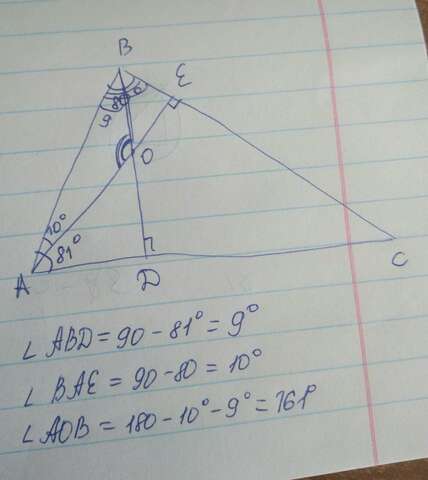 B
E
9 80°
O
10°
81°
A
D
C
∠ ABD = 90 - 81° = 9°
∠ BAE = 90 - 80 = 10°
∠ AOB = 180 - 10° - 9° = 161°